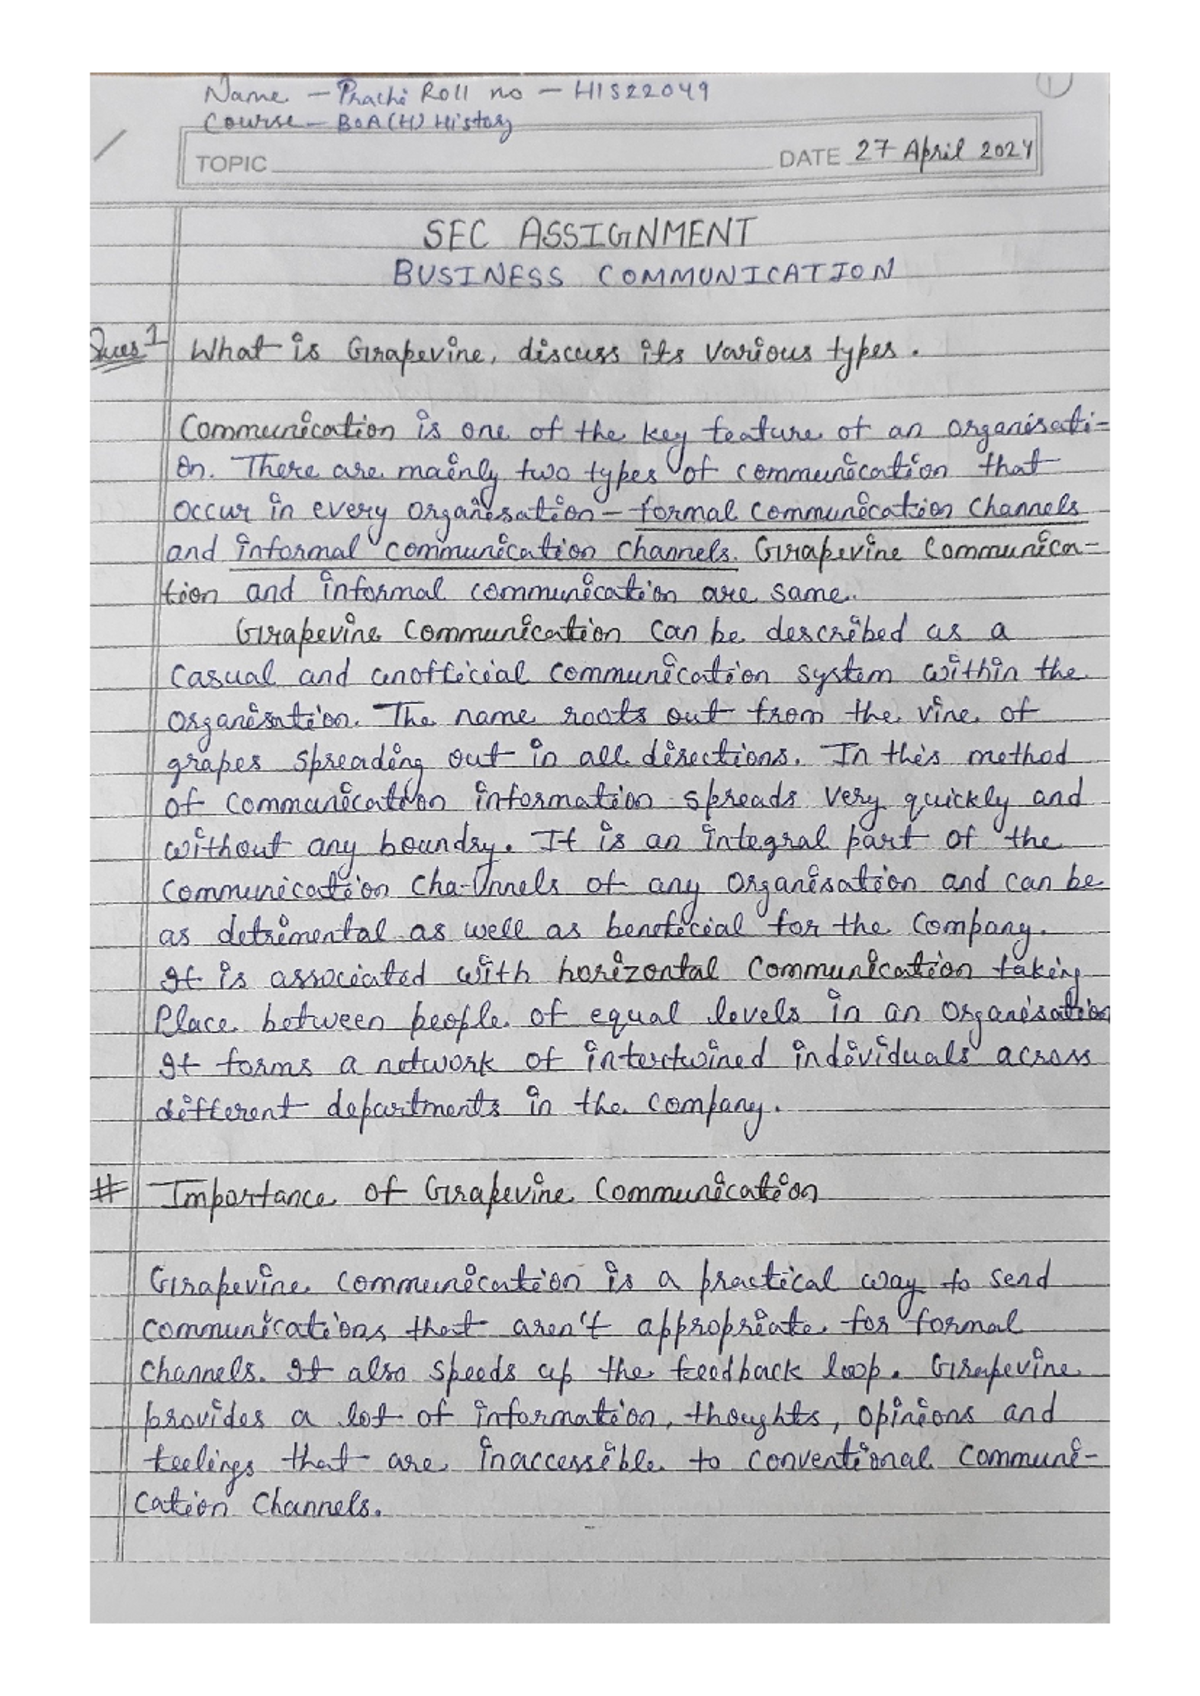 Name - Prachi Roll no - HIS22049
1
Course - B.A(H) History
TOPIC DATE 27 April 2024
SEC ASSIGNMENT
BUSINESS COMMUNICATION
Ques 1 What is Grapevine, discuss its various types.
Communication is one of the key feature of an organisati-
on. There are mainly two types of communication that
occur in every organisation - formal communication channels
and informal communication channels. Grapevine Communica-
tion and informal communication are same.
Grapevine Communication can be described as a
casual and unofficial communication system within the
organisation. The name roots out from the vine of
grapes spreading out in all directions. In this method
of communication information spreads very quickly and
without any boundry. It is an integral part of the
communication channels of any organisation and can be
as detrimental as well as beneficial for the company.
It is associated with horizontal communication taking
place between people of equal levels in an organisation
It forms a network of intertwined individuals across
different departments in the company.
# Importance of Grapevine Communication
Grapevine communication is a practical way to send
communications that aren't appropriate for formal
channels. It also speeds up the feedback loop. Grapevine
provides a lot of information, thoughts, opinions and
feelings that are inaccessible to conventional communi-
cation channels.